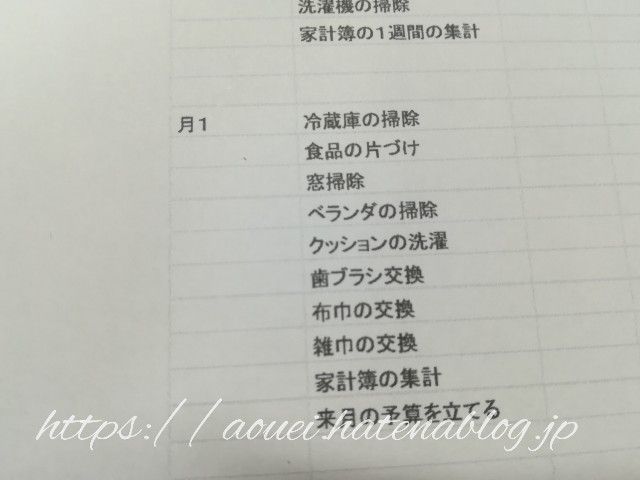 洗濯機の掃除
家計簿の1週間の集計
月1 冷蔵庫の掃除
食品の片づけ
窓掃除
ベランダの掃除
クッションの洗濯
歯ブラシ交換
布巾の交換
雑巾の交換
家計簿の集計
来月の予算を立てる
https://aouei.hatenablog.jp